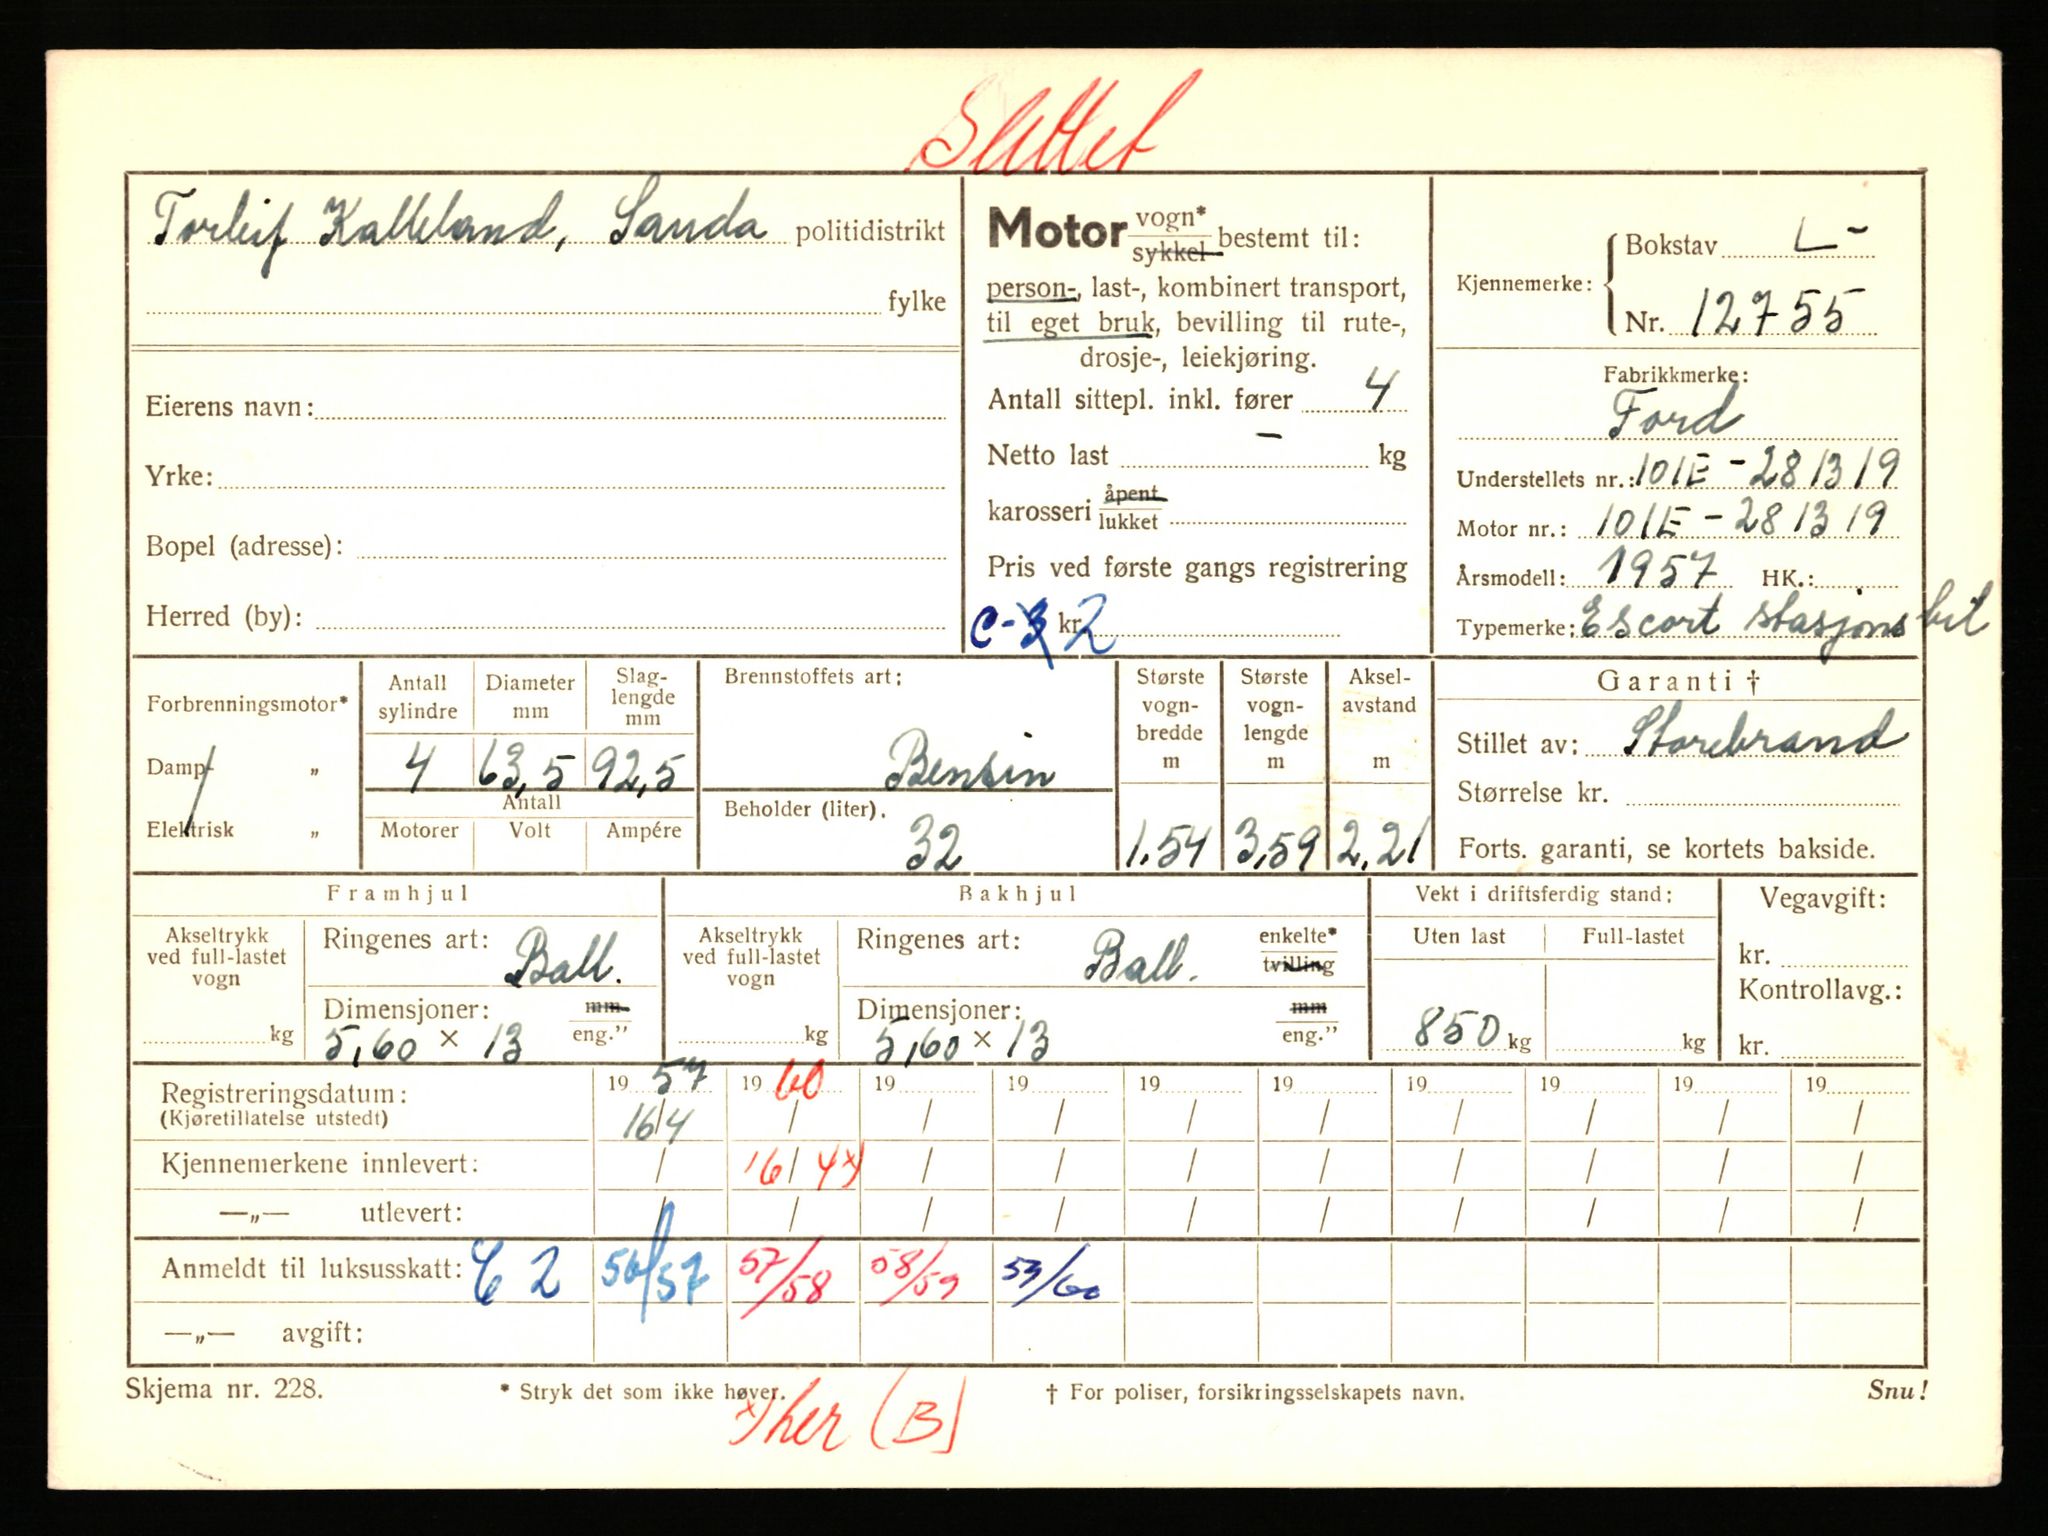 Slettet
Torleif Kalleland, Sauda politidistrikt
fylke
Eierens navn:
Yrke:
Bopel (adresse):
Herred (by):
Motor vogn* / sykkel bestemt til:
person-, last-, kombinert transport,
til eget bruk, bevilling til rute-,
drosje-, leiekjøring.
Antall sittepl. inkl. fører 4
Netto last – kg
karosseri åpent / lukket
Pris ved første gangs registrering
C-3 kr. 2
Kjennemerke: Bokstav L-
Nr. 12755
Fabrikkmerke:
Ford
Understellets nr.: 101E-281319
Motor nr.: 101E-281319
Årsmodell: 1957 HK.:
Typemerke: Escort stasjonsbil
Forbrenningsmotor*
Damp- „
Elektrisk „
Antall sylindre
4
Diameter mm
63,5
Slag-lengde mm
92,5
Antall
Motorer Volt Ampére
Brennstoffets art:
Bensin
Beholder (liter).
32
Største vogn-bredde m
1,54
Største vogn-lengde m
3,59
Aksel-avstand m
2,21
Garanti †
Stillet av: Storebrand
Størrelse kr.
Forts. garanti, se kortets bakside.
Framhjul
Akseltrykk ved full-lastet vogn
kg
Ringenes art: Ball.
Dimensjoner: mm / eng.”
5,60 x 13
Bakhjul
Akseltrykk ved full-lastet vogn
kg
Ringenes art: Ball. enkelte* / tvilling
Dimensjoner: mm / eng.”
5,60 x 13
Vekt i driftsferdig stand:
Uten last Full-lastet
850 kg kg
Vegavgift:
kr.
Kontrollavg.:
kr.
Registreringsdatum: 19 57 19 60 19 19 19 19 19 19 19 19
(Kjøretillatelse utstedt) 16/4 / / / / / / / / /
Kjennemerkene innlevert: / 16/4 x) / / / / / / / /
—„— utlevert: / / / / / / / / / /
Anmeldt til luksusskatt: C 2 56/57 57/58 58/59 59/60
—„— avgift:
Skjema nr. 228. * Stryk det som ikke høver. † For poliser, forsikringsselskapets navn. Snu!
x) her (B)